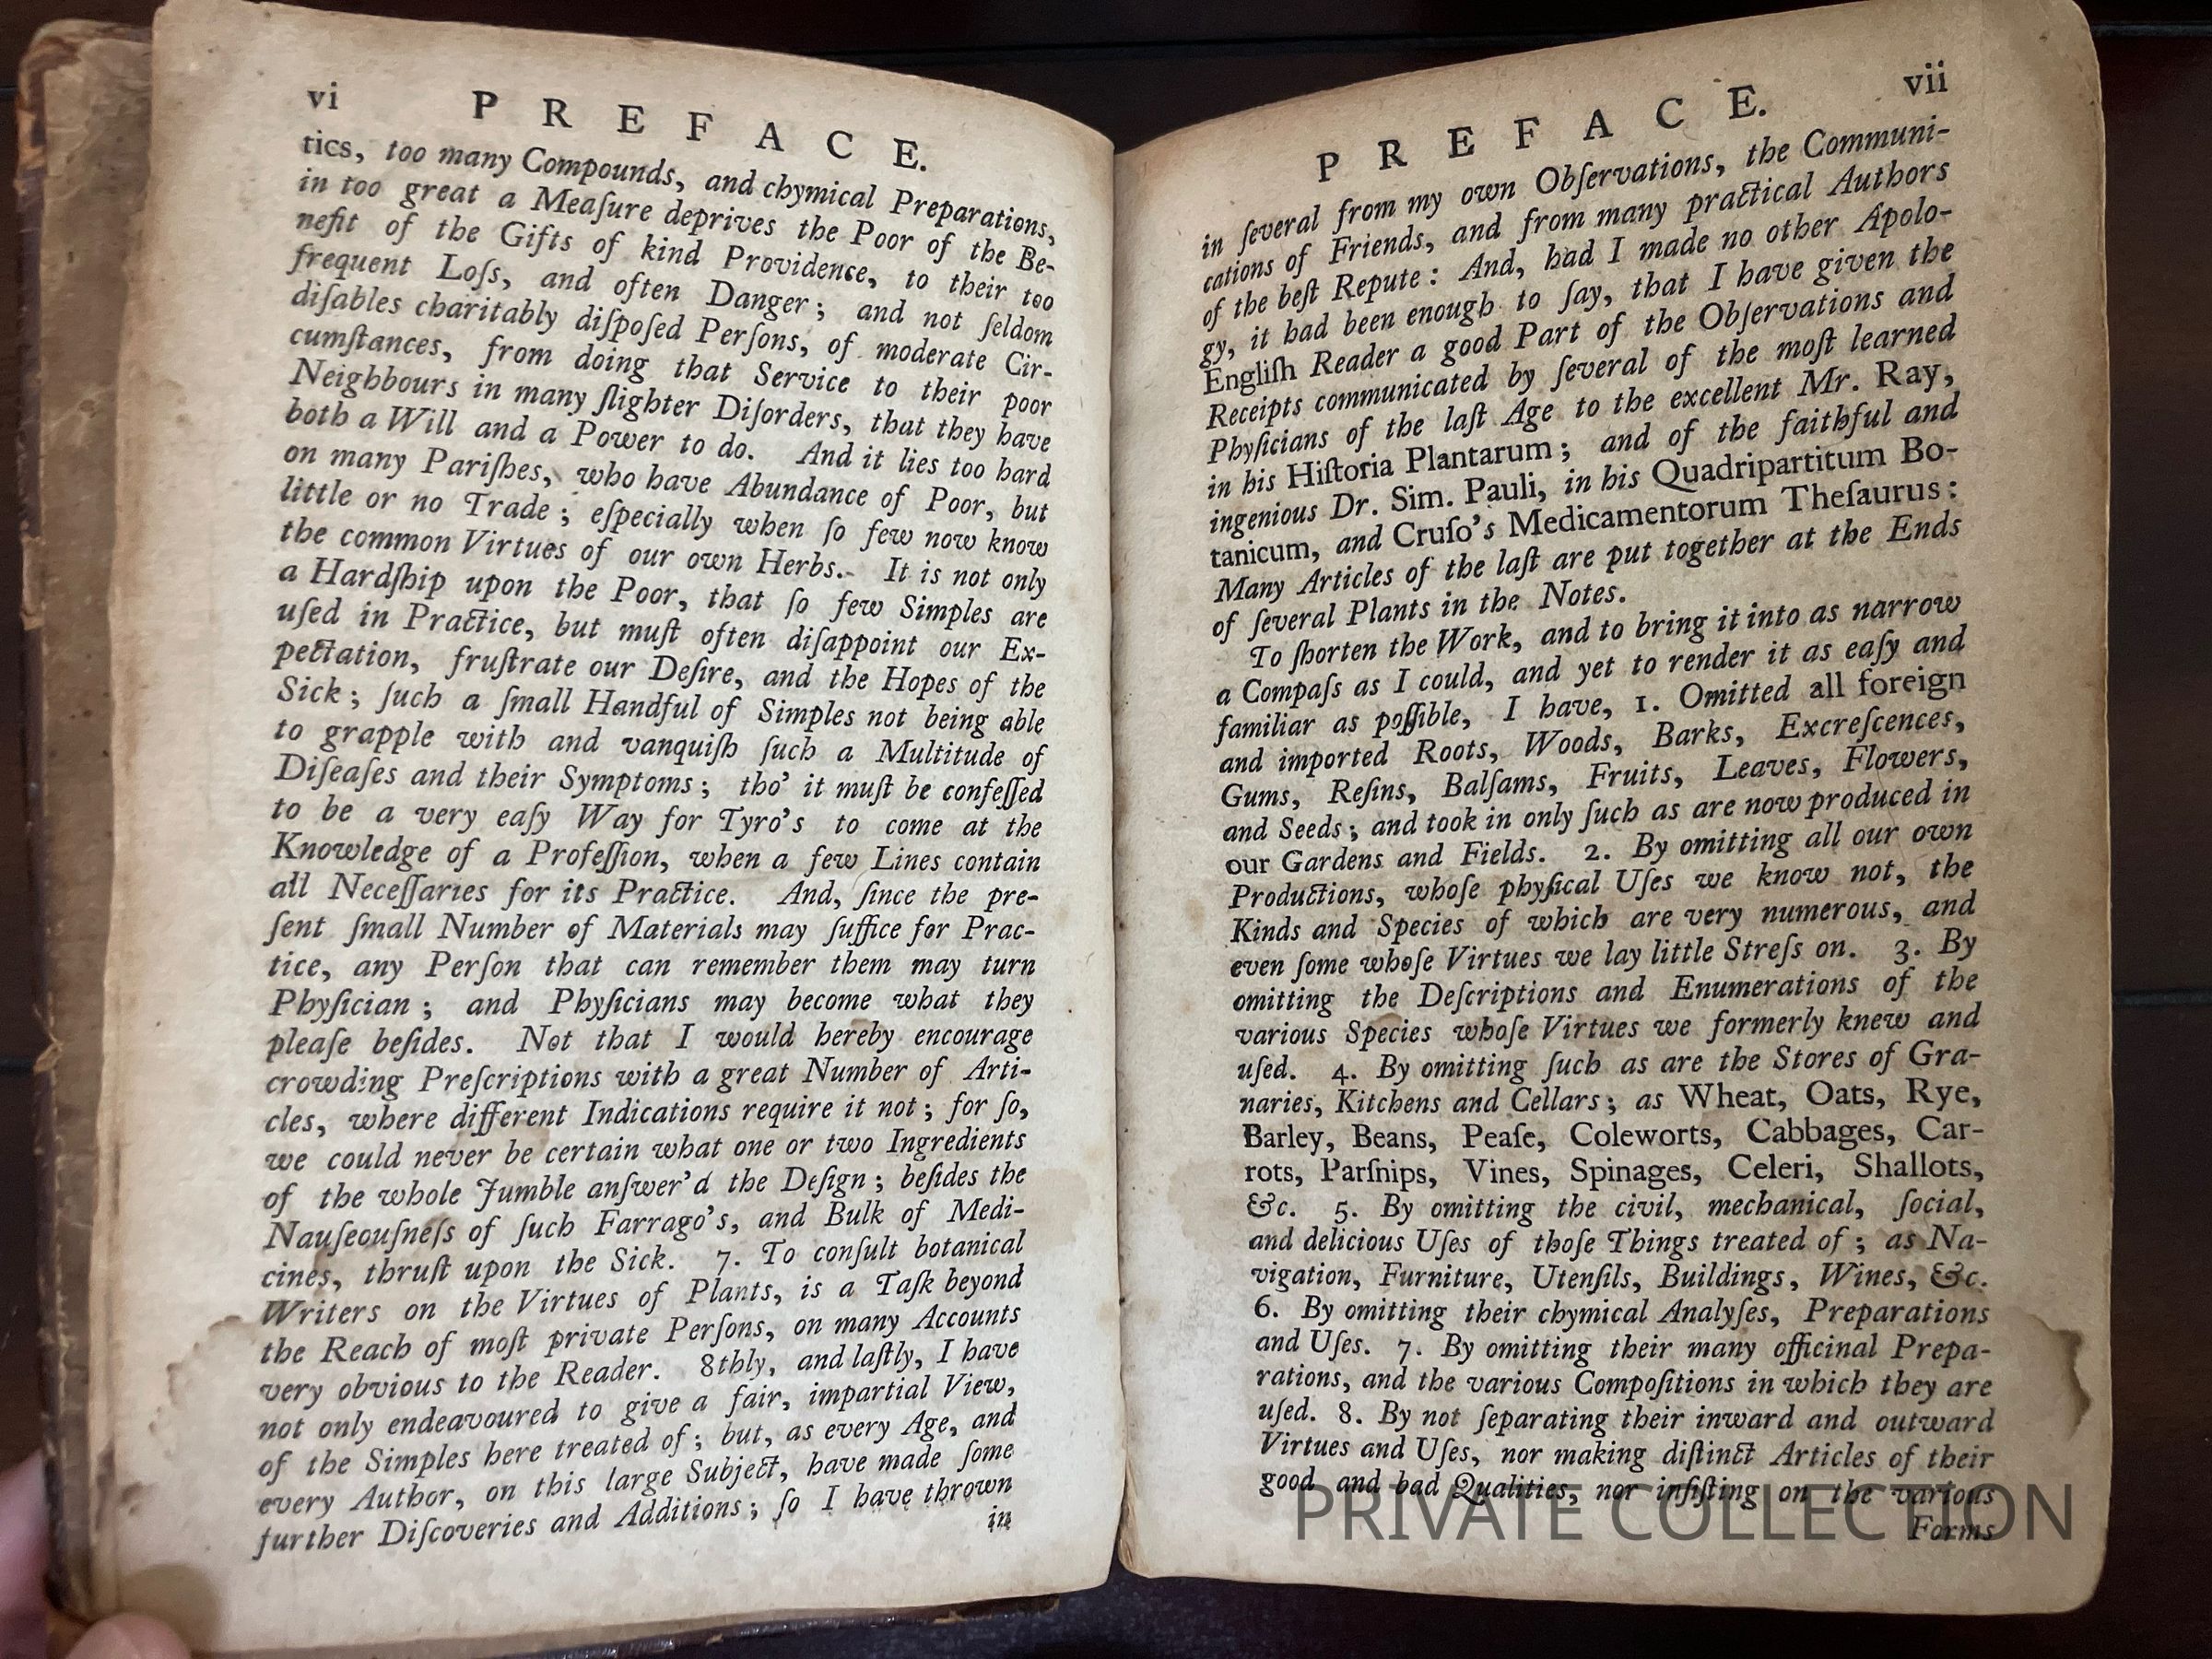 vi P R E F A C E.
tics, too many Compounds, and chymical Preparations,
in too great a Meaſure deprives the Poor of the Be-
nefit of the Gifts of kind Providence, to their too
frequent Loſs, and often Danger; and not ſeldom
diſables charitably diſpoſed Perſons, of moderate Cir-
cumſtances, from doing that Service to their poor
Neighbours in many ſlighter Diſorders, that they have
both a Will and a Power to do. And it lies too hard
on many Pariſhes, who have Abundance of Poor, but
little or no Trade; eſpecially when ſo few now know
the common Virtues of our own Herbs. It is not only
a Hardſhip upon the Poor, that ſo few Simples are
uſed in Practice, but muſt often diſappoint our Ex-
pectation, fruſtrate our Deſire, and the Hopes of the
Sick; ſuch a ſmall Handful of Simples not being able
to grapple with and vanquiſh ſuch a Multitude of
Diſeaſes and their Symptoms; tho' it muſt be confeſſed
to be a very eaſy Way for Tyro's to come at the
Knowledge of a Profeſſion, when a few Lines contain
all Neceſſaries for its Practice. And, ſince the pre-
ſent ſmall Number of Materials may ſuffice for Prac-
tice, any Perſon that can remember them may turn
Phyſician; and Phyſicians may become what they
pleaſe beſides. Not that I would hereby encourage
crowding Preſcriptions with a great Number of Arti-
cles, where different Indications require it not; for ſo,
we could never be certain what one or two Ingredients
of the whole Jumble anſwer'd the Deſign; beſides the
Nauſeouſneſs of ſuch Farrago's, and Bulk of Medi-
cines, thruſt upon the Sick. 7. To conſult botanical
Writers on the Virtues of Plants, is a Taſk beyond
the Reach of moſt private Perſons, on many Accounts
very obvious to the Reader. 8thly, and laſtly, I have
not only endeavoured to give a fair, impartial View,
of the Simples here treated of; but, as every Age, and
every Author, on this large Subject, have made ſome
further Diſcoveries and Additions; ſo I have thrown
in
P R E F A C E. vii
in ſeveral from my own Obſervations, the Communi-
cations of Friends, and from many practical Authors
of the beſt Repute: And, had I made no other Apolo-
gy, it had been enough to ſay, that I have given the
Engliſh Reader a good Part of the Obſervations and
Receipts communicated by ſeveral of the moſt learned
Phyſicians of the laſt Age to the excellent Mr. Ray,
in his Hiſtoria Plantarum; and of the faithful and
ingenious Dr. Sim. Pauli, in his Quadripartitum Bo-
tanicum, and Cruſo's Medicamentorum Theſaurus:
Many Articles of the laſt are put together at the Ends
of ſeveral Plants in the Notes.
To ſhorten the Work, and to bring it into as narrow
a Compaſs as I could, and yet to render it as eaſy and
familiar as poſſible, I have, 1. Omitted all foreign
and imported Roots, Woods, Barks, Excreſcences,
Gums, Reſins, Balſams, Fruits, Leaves, Flowers,
and Seeds; and took in only ſuch as are now produced in
our Gardens and Fields. 2. By omitting all our own
Productions, whoſe phyſical Uſes we know not, the
Kinds and Species of which are very numerous, and
even ſome whoſe Virtues we lay little Streſs on. 3. By
omitting the Deſcriptions and Enumerations of the
various Species whoſe Virtues we formerly knew and
uſed. 4. By omitting ſuch as are the Stores of Gra-
naries, Kitchens and Cellars; as Wheat, Oats, Rye,
Barley, Beans, Peaſe, Coleworts, Cabbages, Car-
rots, Parſnips, Vines, Spinages, Celeri, Shallots,
&c. 5. By omitting the civil, mechanical, ſocial,
and delicious Uſes of thoſe Things treated of; as Na-
vigation, Furniture, Utenſils, Buildings, Wines, &c.
6. By omitting their chymical Analyſes, Preparations
and Uſes. 7. By omitting their many officinal Prepa-
rations, and the various Compoſitions in which they are
uſed. 8. By not ſeparating their inward and outward
Virtues and Uſes, nor making diſtinct Articles of their
good and bad Qualities, nor inſiſting on the various
Forms
PRIVATE COLLECTION